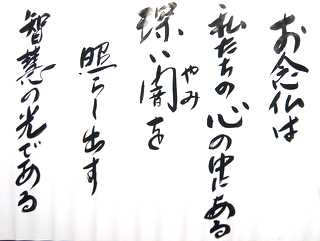 お念仏は
私たちの心の中にある
深い闇を
やみ
照らし出す
智慧の光である